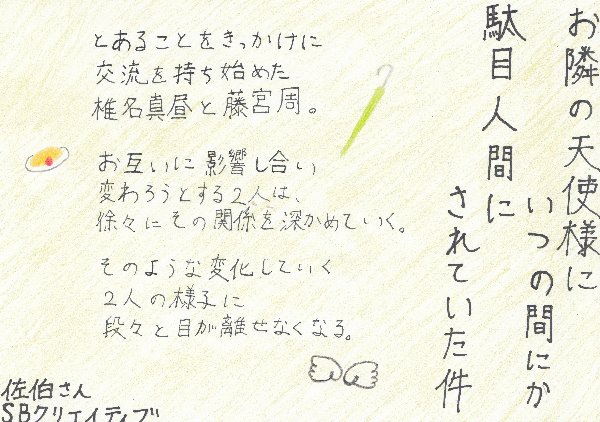 お隣の天使様に
いつの間にか
駄目人間に
されていた件
とあることをきっかけに
交流を持ち始めた
椎名真昼と藤宮周。
お互いに影響し合い
変わろうとする2人は、
徐々にその関係を深かめていく。
そのような変化していく
2人の様子に
段々と目が離せなくなる。
佐伯さん
SBクリエイティブ